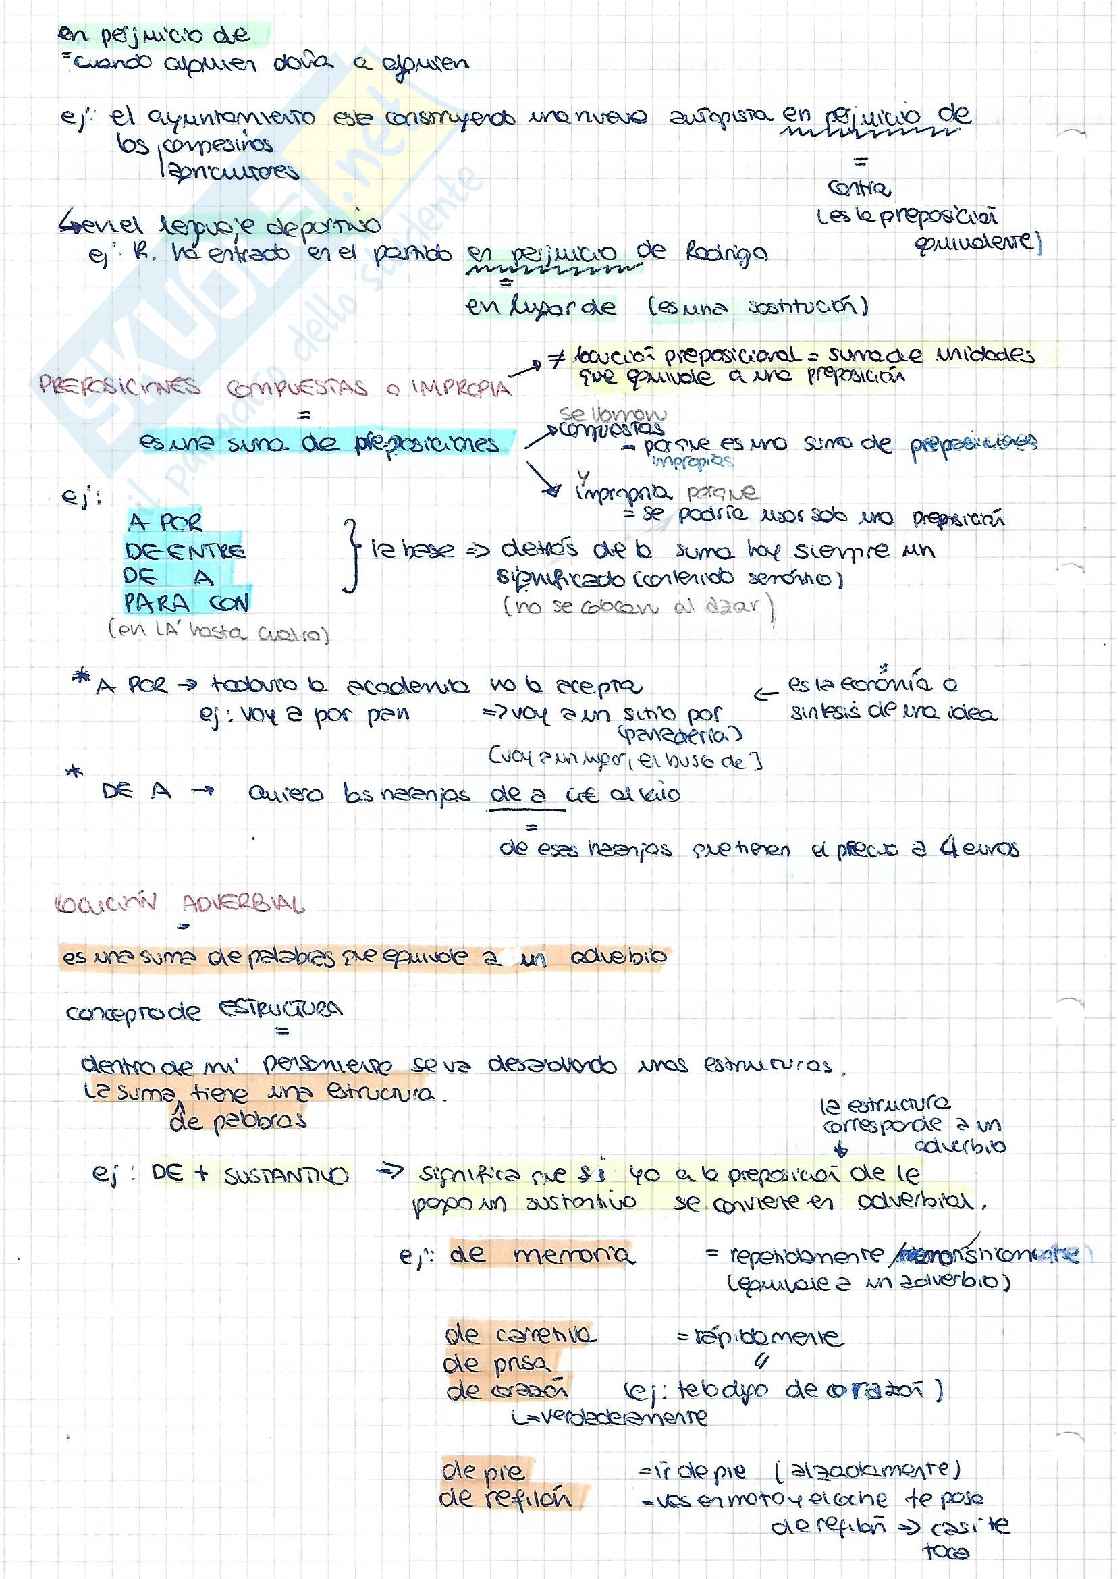 en perjuicio de
= cuando alguien daña a alguien
ej: el ayuntamiento está construyendo una nueva autopista en perjuicio de
los campesinos
agricultores
=
contra
(es la preposición
equivalente)
↳ en el lenguaje deportivo
ej: R. ha entrado en el partido en perjuicio de Rodrigo
=
en lugar de (es una sostitución)
≠ locución preposicional = suma de unidades
que equivale a una preposición
PREPOSICIONES COMPUESTAS O IMPROPIA
=
es una suma de preposiciones
se llaman
compuestas
= porque es una suma de preposiciones
impropias
y
impropria porque
= se podría usar solo una preposición
ej:
A POR
DE ENTRE
DE A
PARA CON
(en LA hasta cuatro)
la base => detrás de la suma hay siempre un
significado (contenido semántico)
(no se colocan al azar)
* A POR → todavía la academia no la acepta
← es la economía o
síntesis de una idea
ej: voy a por pan => voy a un sitio por
(panadería)
(voy a un lugar, en busca de)
* DE A → Quiero las naranjas de a 4€ al kilo
=
de esas naranjas que tienen el precio a 4 euros
LOCUCIÓN ADVERBIAL
=
es una suma de palabras que equivale a un adverbio
concepto de ESTRUCTURA
=
dentro de mi pensamiento se va desarollando unas estructuras.
La suma tiene una estructura.
de palabras
la estructura
corresponde a un
adverbio
ej: DE + SUSTANTIVO => significa que si yo a la preposición de le
pongo un sustantivo se convierte en adverbial.
ej: de memoria = repetidamente /
(equivale a un adverbio)
de carrerilla = rápidamente
de prisa "
de corazón (ej: te lo digo de corazón)
↳ = verdaderamente
de pie = ir de pie (alzadamente)
de refilón = vas en moto y el coche te pasa
de refilón => casi te
toca
SKUOLA.net
il paradiso dello studente